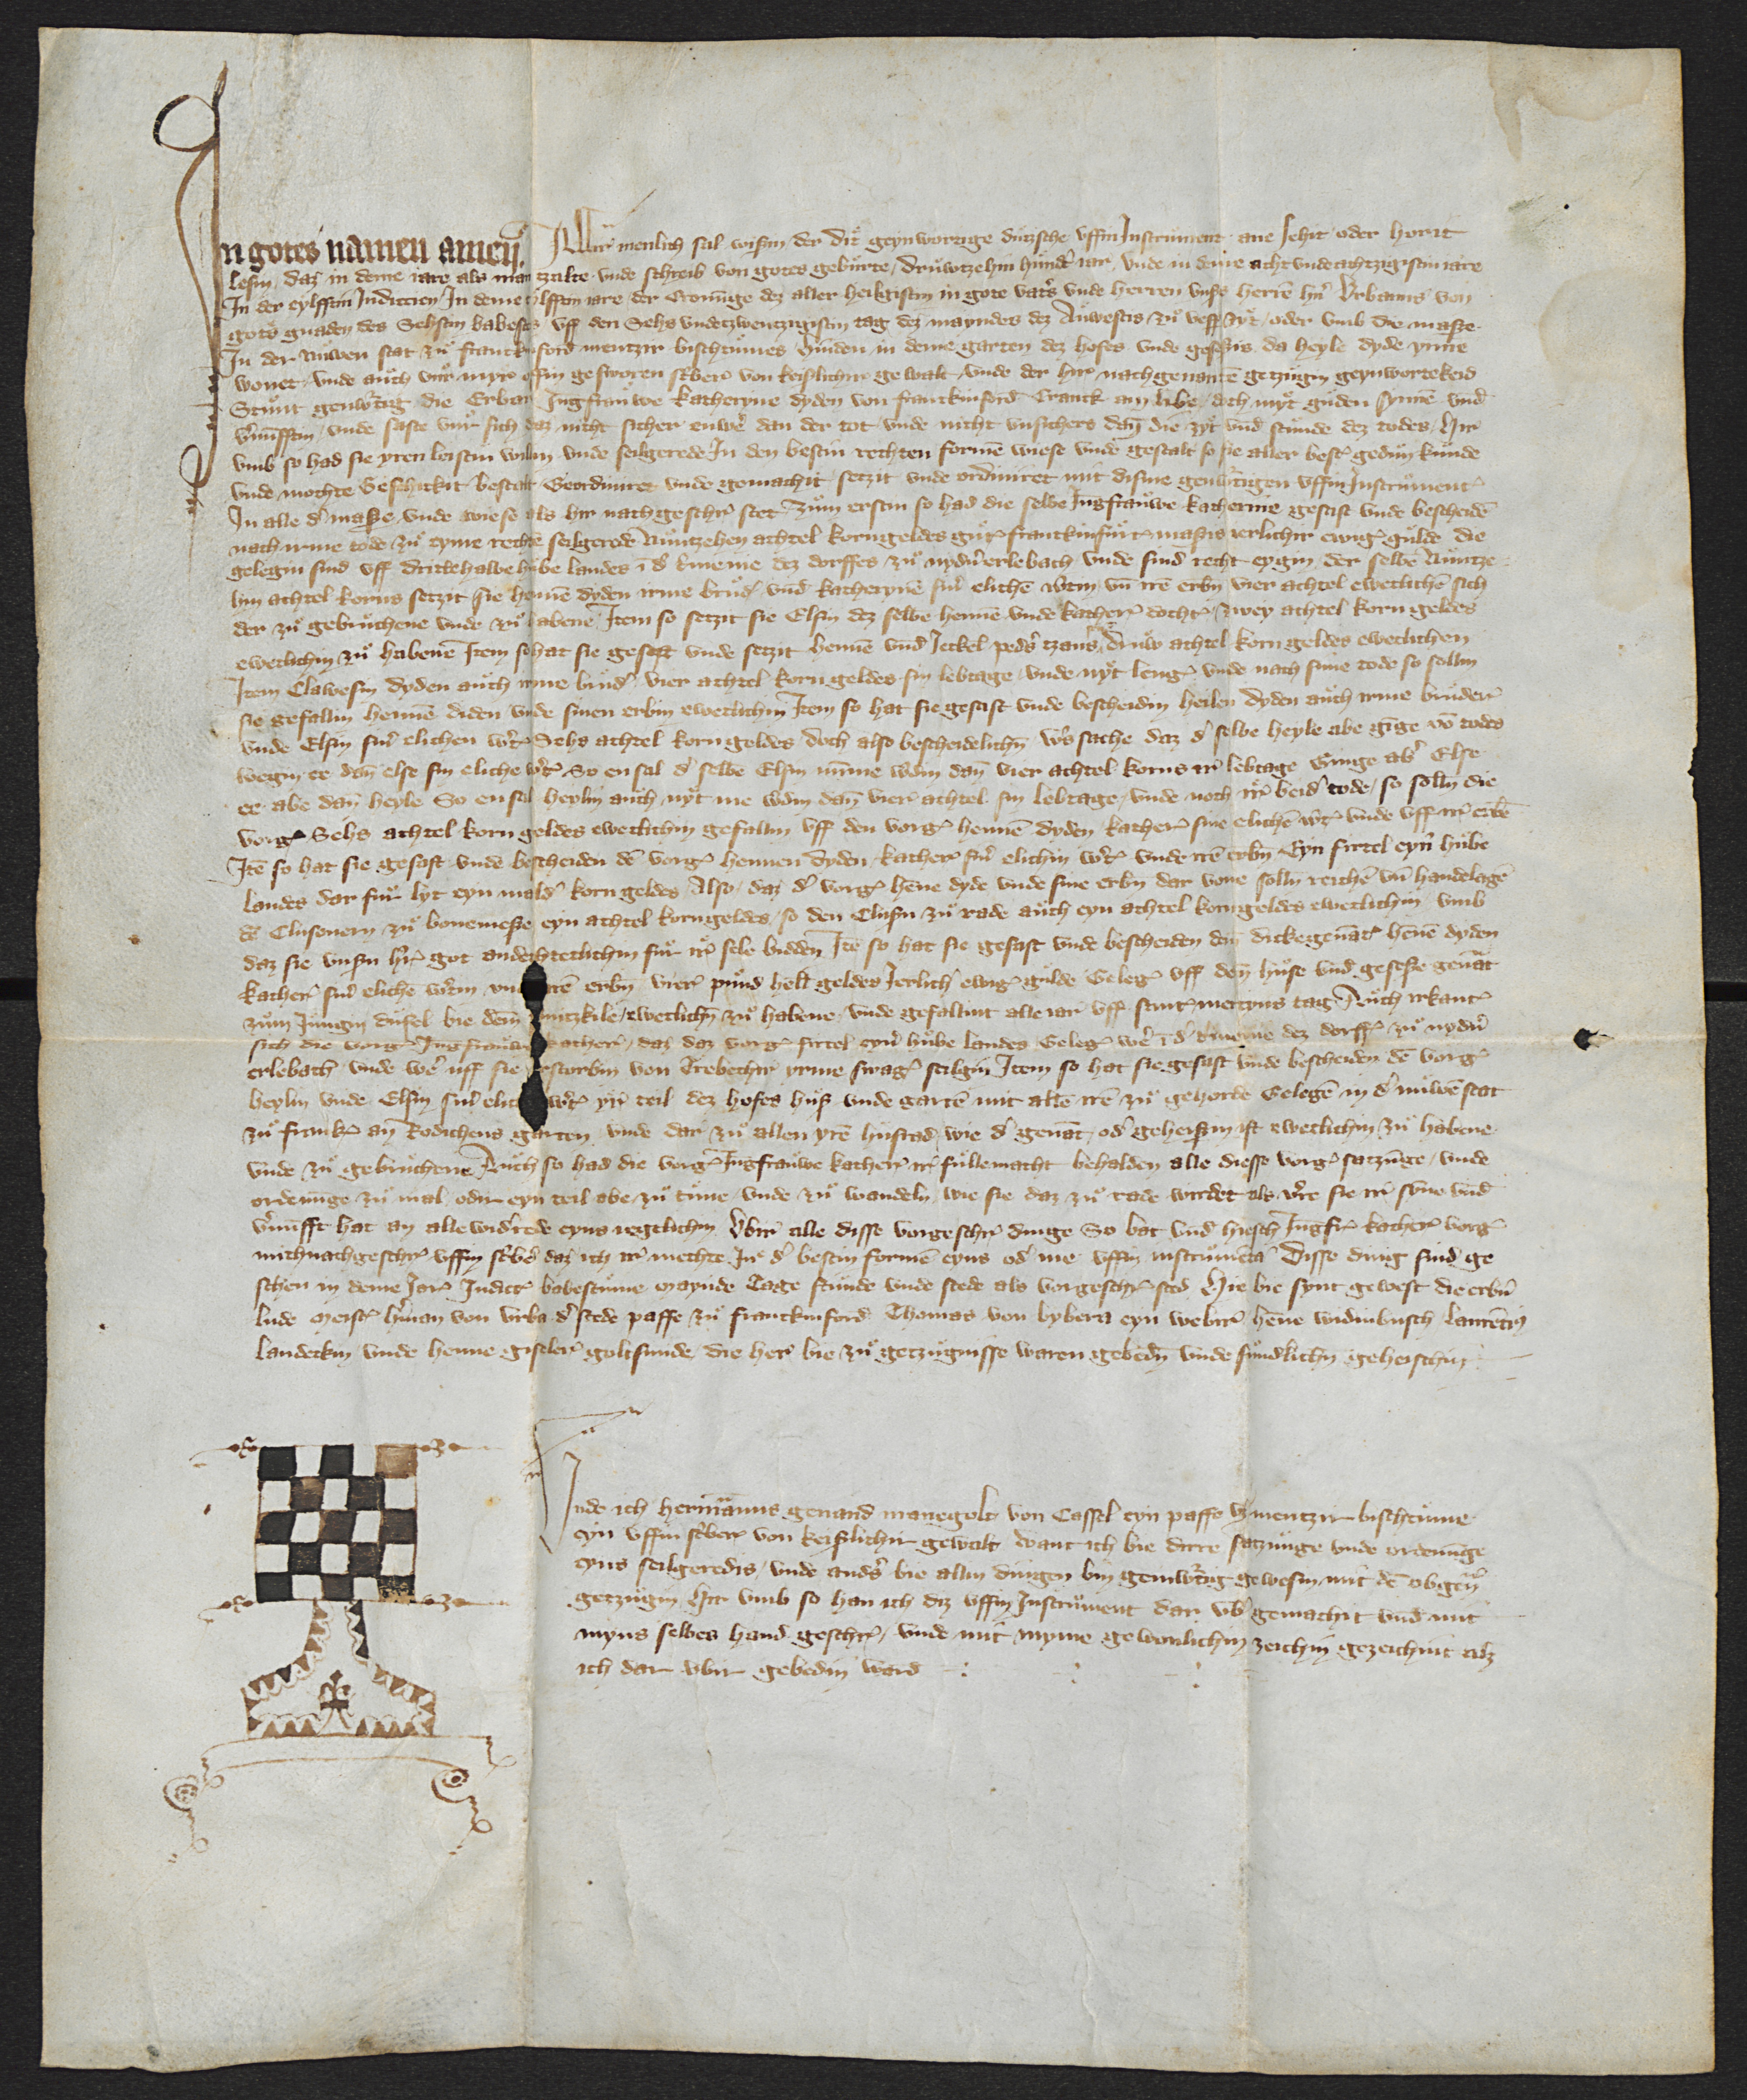 In gotes namen amen. Allir menlich sal wißin der dit geynwortige dutzsche uffin Instrument ane sehit oder horit
lesin, daz in deme iare als man tzalte unde schreib von gotes geburte, druwtzehin hundert iar, unde in deme acht unde achtzigistin iare
In der eylfften Indiccien In deme eilfften iare der Cronunge dez aller heiligistin in gote vaters unde herren unsers herren hern Urbanus von
gots gnaden des Sehstin babestes uff den Sehs undetzwentzigistin tag dez mayndes dez Auwestis zu vesp zyt, oder umb die maße
In der nuwen stat zu franckinford mentzir bischtumes hinden in deme garten dez hofes unde geseßis da heyle dyde ynne
wonet, unde auch vor myr offin gesworen schriber von keißlichir gewalt unde der hir nachgenanten getzugin geynwortekeid
Stunt genwertig die Erbar Jungfrauwe Katheryne dyden von franckinford Cranck am libe, doch myt guden synnen und
vernunfftin, unde saste vur sich daz nicht sicher enwer dan der tot unde nicht unsichers dan die zyt und stunde dez todes, hir
umb so had sie yren leistin willin unde seilgerede In den bestin rechten formen wiese unde gestalt so sie aller best gedun kunde
unde mochte Geschickit bestalt Geordiniret unde gemachit setzit unde ordiniret mit disme genwertigen uffin Instrument
In alle der maße unde wiese als hir nach geschr stet Zum erstin so had die selbe Jungfrauwe katherine gesast unde bescheiden
nach irme tode zu eyme rechten seilgerede Nuntzehen achtel korngeldes gutz franckinfurt maßis ierlichir ewig gulde die
gelegin sind uff drittehalbe hube landes in der termenie dez dorffes zu nydern erlebach unde sind recht eygin, der selben Nuntze
hin achtel korns setzit sie hennen dyden irme bruder und katherynen siner elichen wirtin, und iren erbin vier achtel ewetlichen sich
der zu gebruchene unde zu habene Item so setzit sie Elsin dez selben hennen unde kather dochter, zwey achtel korn geldes
ewetlichin zu habene Item so hat sie gesast unde setzit hennen und Jeckel peders tzans, druw achtel korn geldes ewetlichen
Item Clawesin dyden auch irme bruder vier achtel korn geldes sin lebtage unde nyt lenger unde nach sime tode so sollin
sie gefallin hennen diden unde sinen erbin ewetlichin Item so hat sie gesast unde bescheidin heilen dyden auch irme bruder
unde Elsin siner elichen wirtin Sehs achtel korn geldes doch also bescheidelichin wers sache daz der selbe heyle abe ginge von todes
wegin ee dan else sin eliche wirtin So en sal der selben Elsin nummer werdin dan vier achtel korns ir lebtage Ginge aber Else
ee abe dan heyle So en sal heylin auch nyt me werdin dan vier achtel sin lebtage, unde noch ir beider tode, so sollin die
vorg Sehs achtel korn geldes ewetlichin gefallin uff den vorg hennen dyden kather sine elichen wirtin unde uff ir erben
Item so hat sie gesast unde bescheiden den vorg hennen dyden, kather siner elichin wirtin unde iren erbin Eyn firtel eyner hube
landes dar fur lyt eyn malder korn geldes Also, daz der vorg henne dyde unde sine erbin dar vone sollin reichen und handelagen
den Clusenern zu bonemeße eyn achtel korngeldes, so den Clusin zu rade auch eyn achtel korngeldes ewetlichin umb
daz sie unsin hern got andechtetlichin fur ir sele bidden Item so hat sie gesast unde bescheiden den dickegenanten hennen dyden
kather siner elichen wirtin und iren erbin vier pund heller geldes Jerlich ewig gulde Geleg uff den huse und geseße genant
zum Jungin dufel bie dem ewetlichin zu habene, unde gefallint alle iar uff sant mertyns tag Auch irkant
sich die vorg Jungfrauwe kather, daz daz vorg firtel eyner hube landes Geleg wer in der termenie dez dorff zu nydern
erlebach unde wer uff sie erstorbin von Trebechir yrme swager seilgin Item so hat sie gesast unde bescheiden den vorg
heylin unde Elsin siner elichen wirtin yr teil dez hofes huß unde garten mit allen iren zu gehorde Gelegen in der nuwen stat
zu franck an Rodichens garten unde dar zu allen yren husrad, wie der genant, oder geheißin ist ewetlichin zu habene
unde zu gebruchene Auch so had die vorg Jungfrauwe kather ir fullemacht behalden alle diesse vorg satzunge, unde
ordenunge zu mal, odir eyn teil abe zu tune unde zu wandeln, wie sie daz zu rade wirdet als verre sie ir synne und
vernunfft hat an alle widerrede eyns iegelichin Ubir alle disse vorgeschr dinge So bat und hiesch Jungfr kather vorg
mich nachgeschr uffin schriber daz ich ir mechte In der bestin formen eyns oder me uffin instrumenta Disse ding sind ge
schen in deme Jar Indict babestume maynde Tage stunde unde stede als vorgeschr sted Hie bie synt gewest die erbern
lude meister herman von urba der stede paffe zu franckinford Thomas von bybera eyn webir henne widinbusch laurencius
landeckin unde henne giseler goltsmide, die her bie zu getzugnisse waren gebedin unde sundlichin geheischin
Unde ich hermannus genand manegolt von Cassel eyn paffe mentzir bischtume
eyn uffin schriber von keißlichir gewalt want ich bie dirre satzunge unde ordenunge
eyns seilgeredis, unde anders bie allin dingen bin genwertig gewesin mit den obgenanten
getzugin Hir umb so han ich diz uffin Instrument dar uber gemachit und mit
myns selbes hand geschr, unde mit myme gewonlichin zeichin gezeichint alz
ich dar ubir gebedin ward